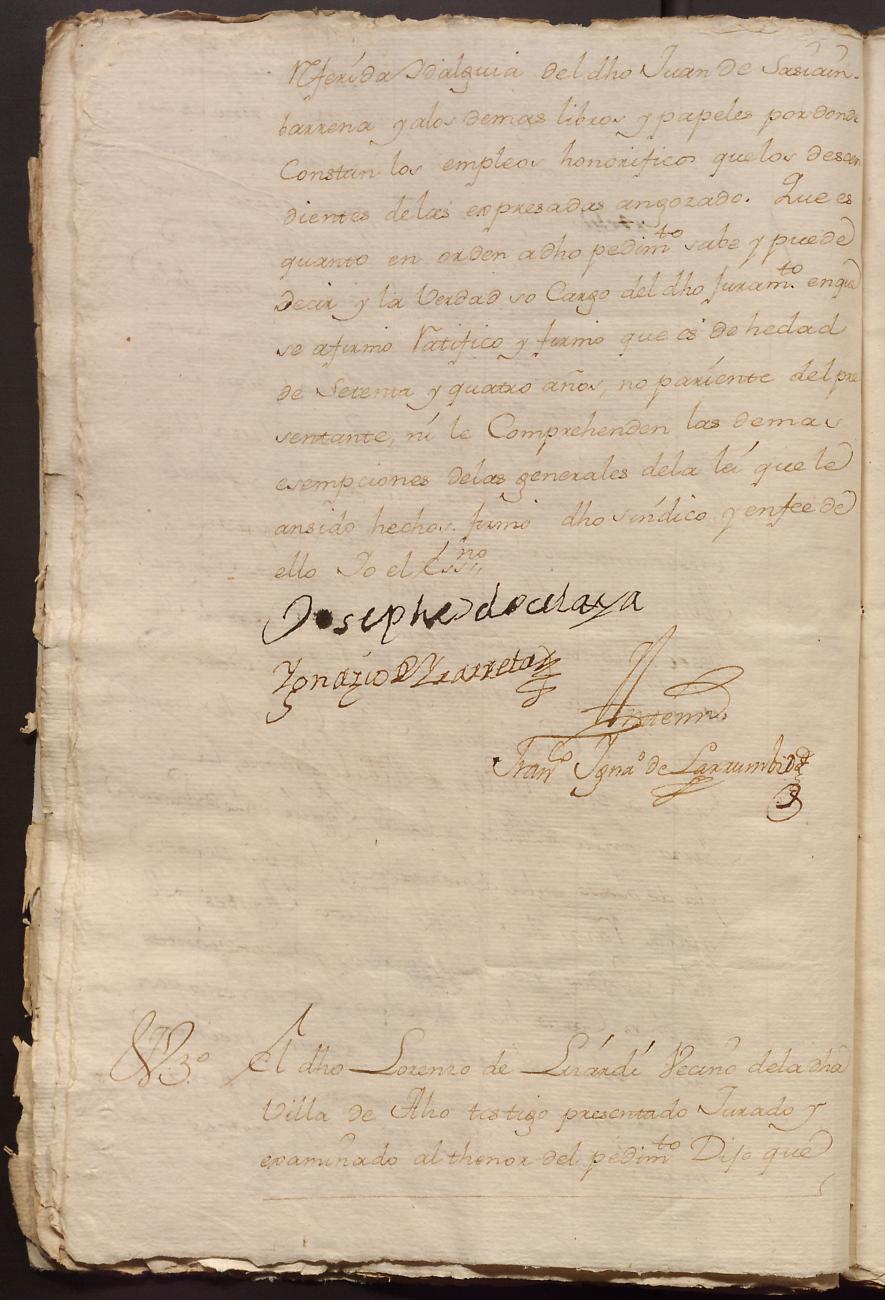 Rferida Ydalguia del dho Juan de Sasiain-
barrena yalos demas libros y papeles por donde
Constan los empleos honorificos quelos descen
dientes delas expresadas angozado. Que es
quanto en orden adho pedimto sabe y puede
decir y la Verdad so Cargo del dho Juramto. enque
se afirmo Ratifico y firmo que es de hedad
de Setenta y quatro años, no pariente del pre
sentante, ni le Comprehenden las demas
esempciones delas generales dela lei que le
ansido hechos. firmo dho sindico y enfee de
ello Yo el Essno
Josephe de olaza
Ygnazio de Yrarreta
Antemi
Franco Ygnao de Larrumbide
3o
El dho Lorenzo de Lizardi Vecino dela dha
Villa de Aho testigo presentado Jurado y
examinado al thenor del pedimto Dijo que